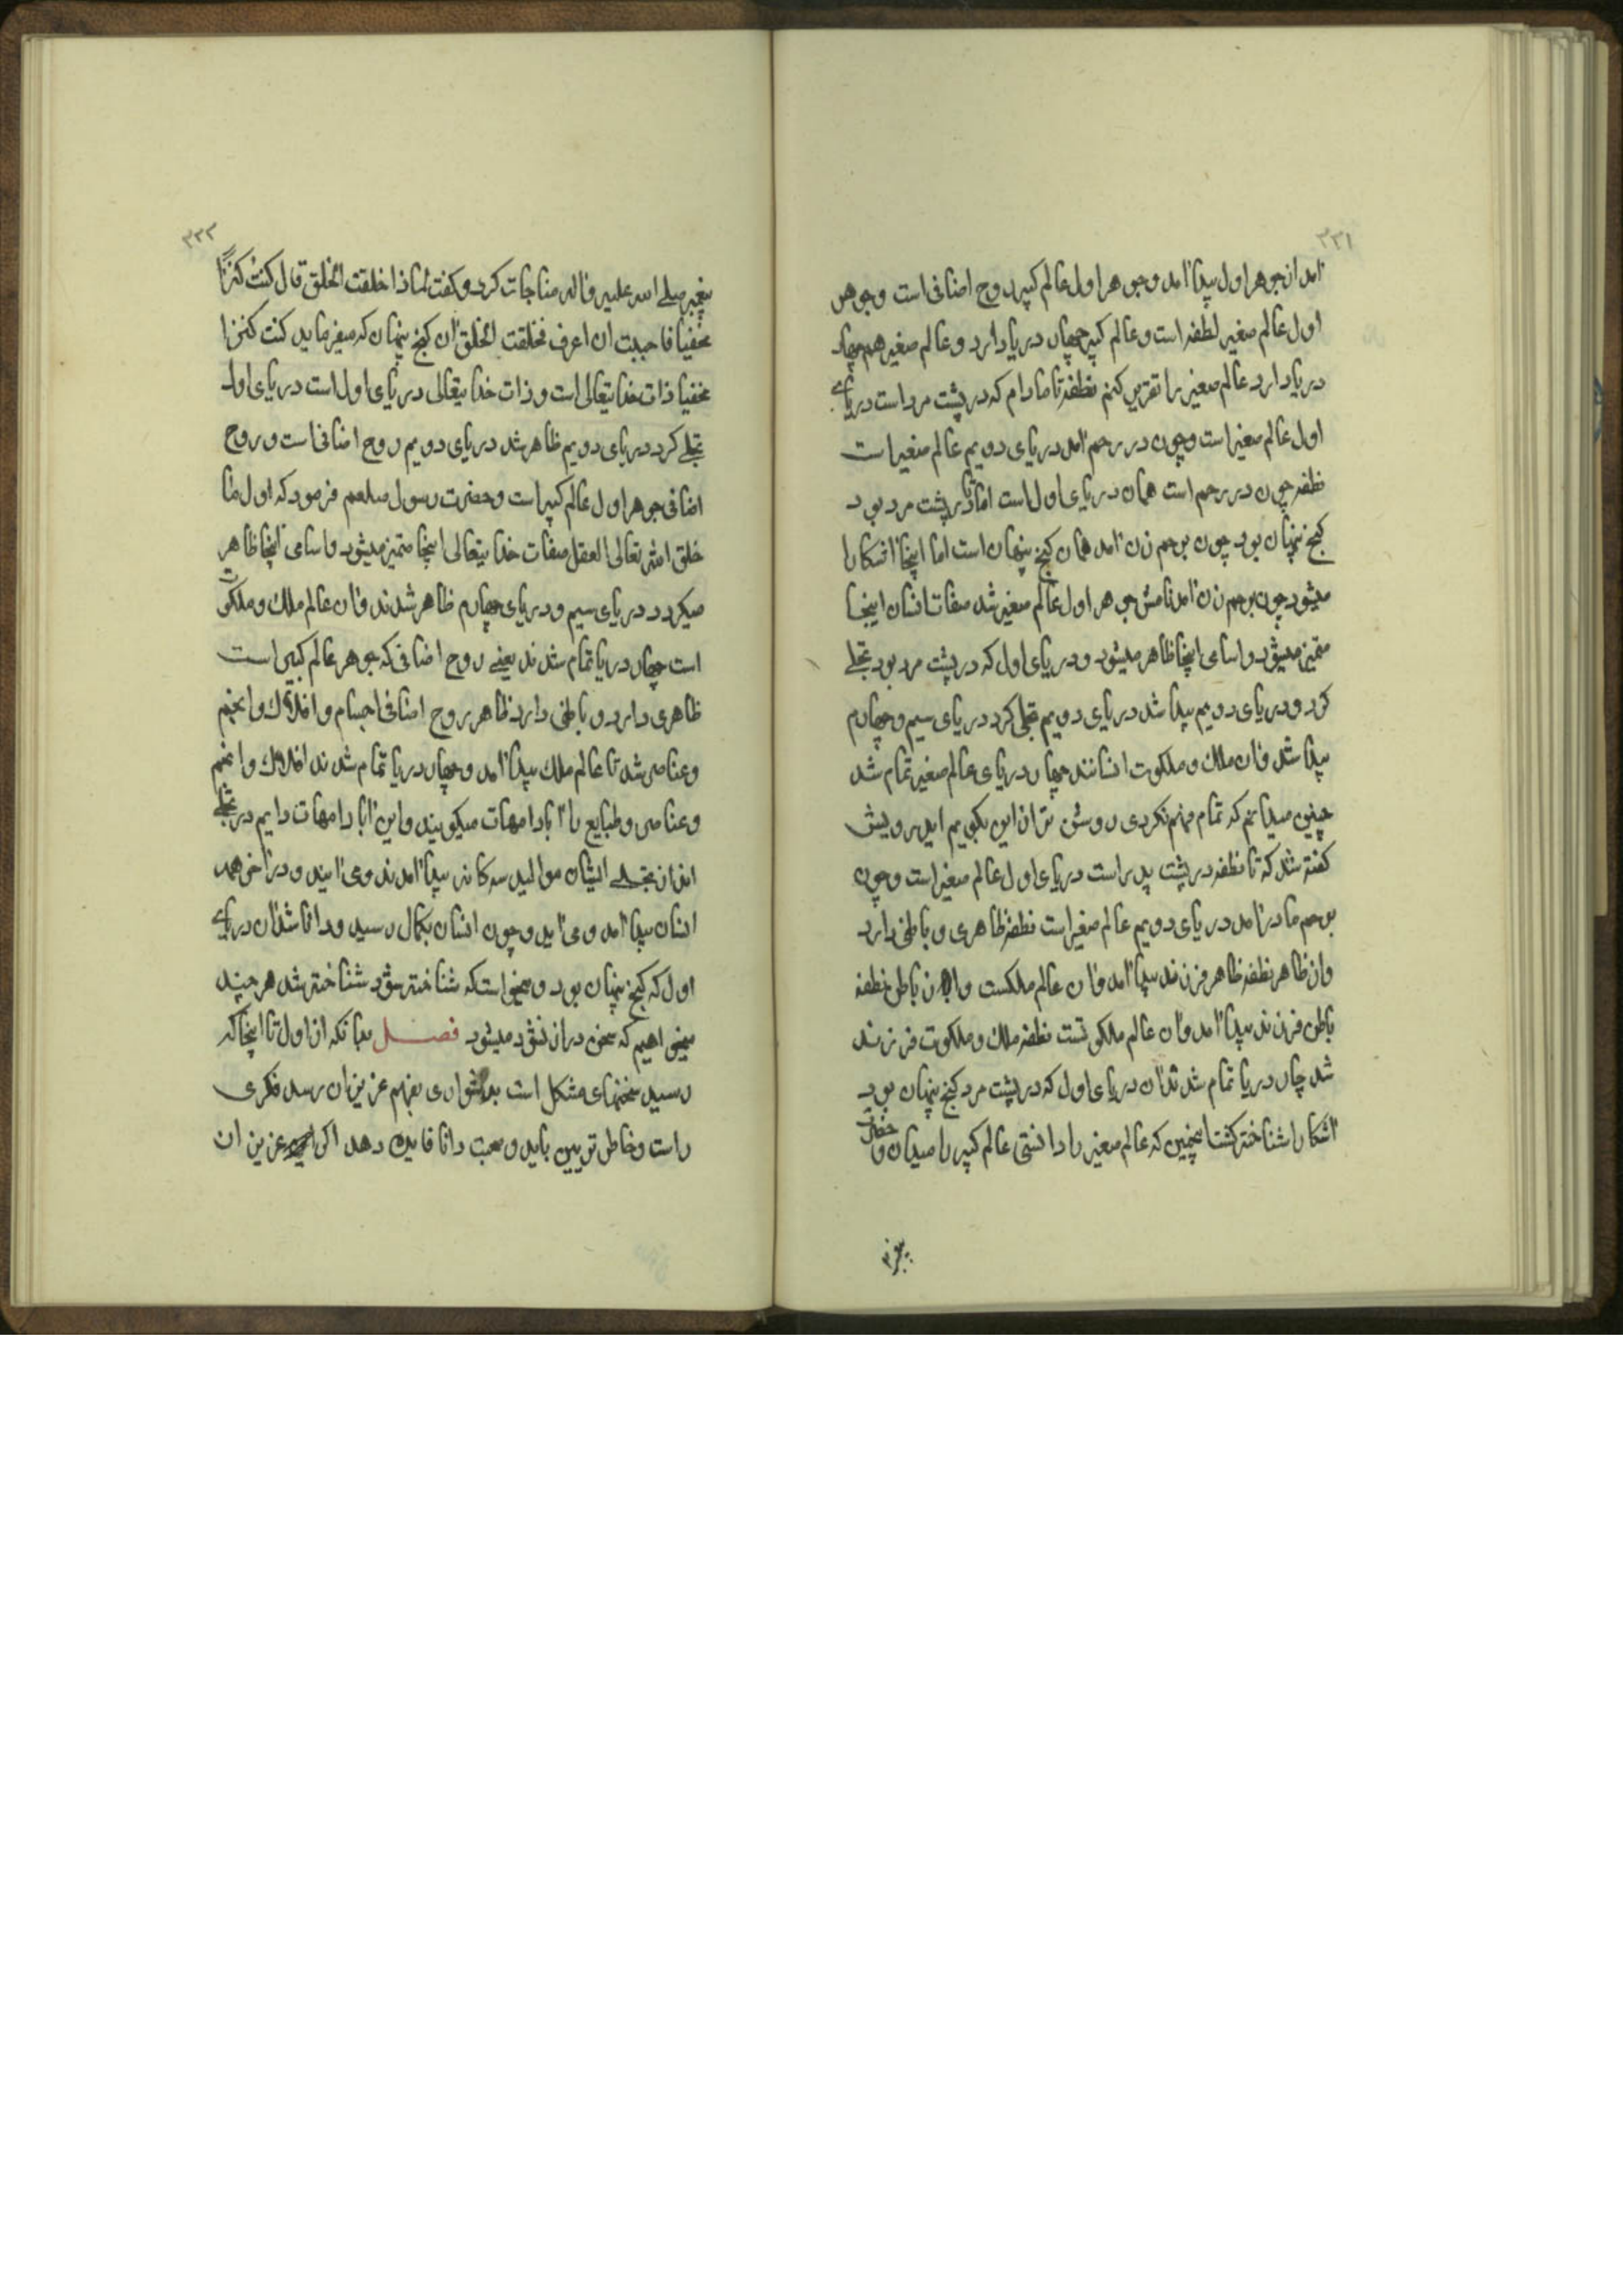 ۳۳۱
آمد از جوهر اول پیدا آمد و جوهر اول عالم کبیر روح اضافی است و جوهر
اول عالم صغیر نطفه است و عالم کبیر چهار دریا دارد و عالم صغیر هم چهار
دریا دارد عالم صغیر را تقریر کنم نطفه تا مادام که در پشت مرد است دریای
اول عالم صغیر است و چون در رحم آمد دریای دویم عالم صغیر است
نطفه چون در رحم است همان دریای اول است اما تا در پشت مرد بود
کنج پنهان بود چون برحم زن آمد همان کنج پنهان است اما اینجا آشکارا
میشود چون برحم زن آمد نامش جوهر اول عالم صغیر شد صفات انسان اینجا
متمیز میشود و اسامی اینجا ظاهر میشود و دریای اول که در پشت مرد بود تجلی
کرد و دریای دویم پیدا شد دریای دویم تجلی کرد دریای سیم و چهارم
پیدا شد و آن ملک و ملکوت انسانند چهار دریای عالم صغیر تمام شد
چنین میدانم که تمام فهم نکردی روشن تر ازین بگویم ای درویش
گفته شد که تا نطفه در پشت پدر است دریای اول عالم صغیر است و چون
برحم مادر آمد دریای دویم عالم صغیر است نطفه ظاهری و باطنی دارد
و از ظاهر نطفه ظاهر فرزند پیدا آمد و آن عالم ملکست و از باطن نطفه
باطن فرزند پیدا آمد و آن عالم ملکوتست نطفه ملک و ملکوت فرزند
شد چهار دریا تمام شدند آن دریای اول که در پشت مرد کنج پنهان بود
آشکارا شناخته گشت اینچنین که عالم صغیر را دانستی عالم کبیر را میدان و حضرت
پیغمبر
۳۳۲
پیغمبر صلی الله علیه وآله مناجات کرد و گفت لماذا خلقت الخلق قال کنت کنزاً
مخفیا فاحببت ان اعرف فخلقت الخلق آن کنج پنهان که میفرماید کنت کنزا
مخفیا ذات خدایتعالی است و ذات خدایتعالی دریای اول است دریای اول
تجلی کرد دریای دویم ظاهر شد دریای دویم روح اضافی است و روح
اضافی جوهر اول عالم کبیر است و حضرت رسول صلعم فرمود که اول ما
خلق الله تعالی العقل صفات خدایتعالی اینجا متمیز میشود و اسامی اینجا ظاهر
میکردد دریای سیم و دریای چهارم ظاهر شدند و آن عالم ملک و ملکوت
است چهار دریا تمام شدند یعنی روح اضافی که جوهر عالم کبیر است
ظاهری دارد و باطنی دارد ظاهر روح اضافی اجسام و افلاک و انجم
و عناصر شد تا عالم ملک پیدا آمد و چهار دریا تمام شدند افلاک و انجم
و عناصر و طبایع را آبا و امهات میکویند و این آبا و امهات دایم در تجلی
اند از تجلی ایشان موالید سه کانه پیدا آمدند و می آیند و در آخر همه
انسان پیدا آمد و می آید و چون انسان بکمال رسید و دانا شد آن دریای
اول که کنج پنهان بود و میخواست که شناخته شود شناخته شد هر چند
میخواهیم که سخن دراز نشود میشود فصل بدانکه از اول تا اینجا که
رسید سخنهای مشکل است بدشواری بفهم عزیزان رسد فکری
راست و خاطر تیزبین باید و صحبت دانا فایده دهد اگر عزیز ان